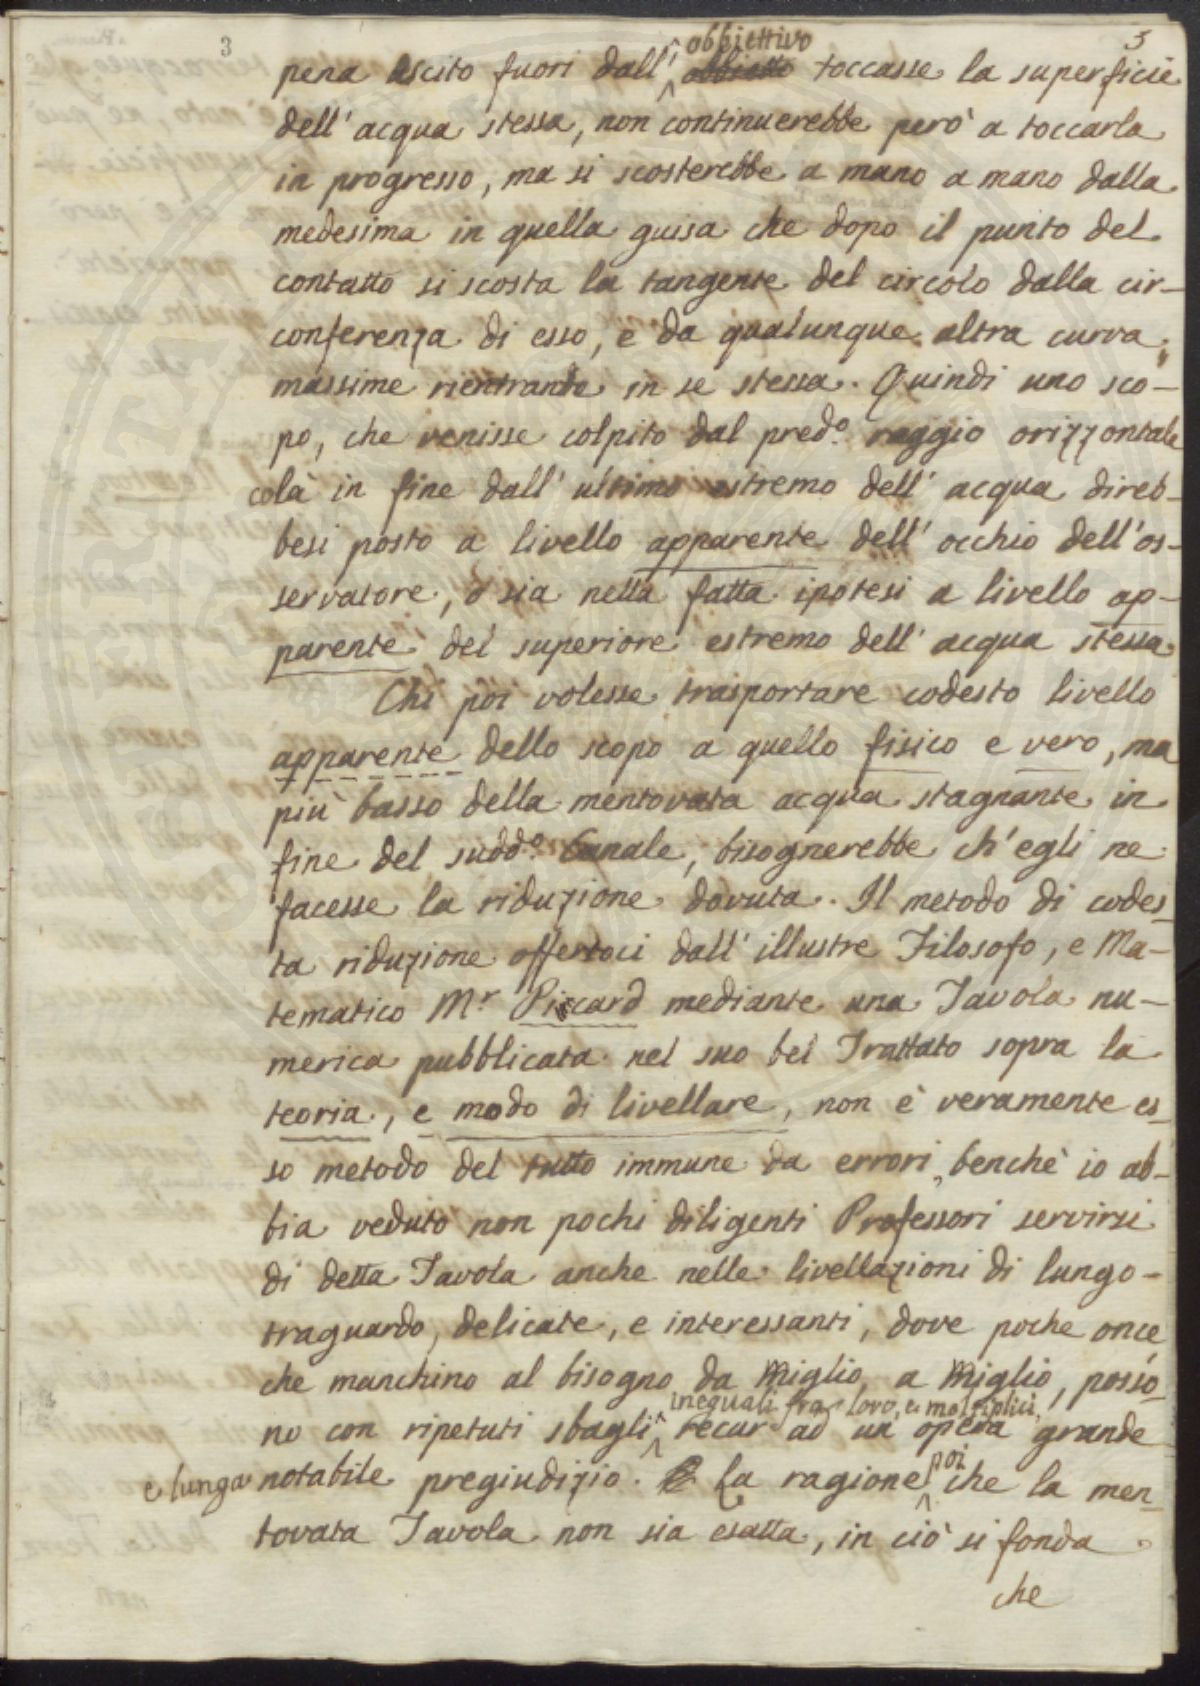 3
3
pena uscito fuori dall' obbiettivo toccasse la superficie
dell' acqua stessa, non continuerebbe però a toccarla
in progresso, ma si scosterebbe a mano a mano dalla
medesima in quella guisa che dopo il punto del
contatto si scosta la tangente del circolo dalla cir-
conferenza di esso, e da qualunque altra curva,
massime rientrante in se stessa. Quindi uno sco-
po, che venisse colpito dal pred.o raggio orizzontale
colà in fine dall' ultimo estremo dell' acqua direb-
besi posto a livello apparente dell' occhio dell' os-
servatore, o sia nella fatta ipotesi a livello ap-
parente del superiore estremo dell' acqua stessa.
Chi poi volesse trasportare codesto livello
apparente dello scopo a quello fisico e vero, ma
più basso della mentovata acqua stagnante in
fine del sudd.o Canale, bisognerebbe ch' egli ne
facesse la riduzione dovuta. Il metodo di codes-
ta riduzione offertoci dall' illustre Filosofo, e Ma-
tematico M.r Piccard mediante una Tavola nu-
merica pubblicata nel suo bel Trattato sopra la
teoria, e modo di livellare, non è veramente es-
so metodo del tutto immune da errori, benchè io ab-
bia veduto non pochi diligenti Professori servirsi
di detta Tavola anche nelle livellazioni di lungo-
traguardo, delicate, e interessanti, dove poche once
che manchino al bisogno da Miglio, a Miglio, posso-
no con ripetuti sbagli inequali fra loro, e moltiplici, recar ad un' opera grande
e lunga notabile pregiudizio. La ragione poi che la men-
tovata Tavola non sia esatta, in ciò si fonda
che